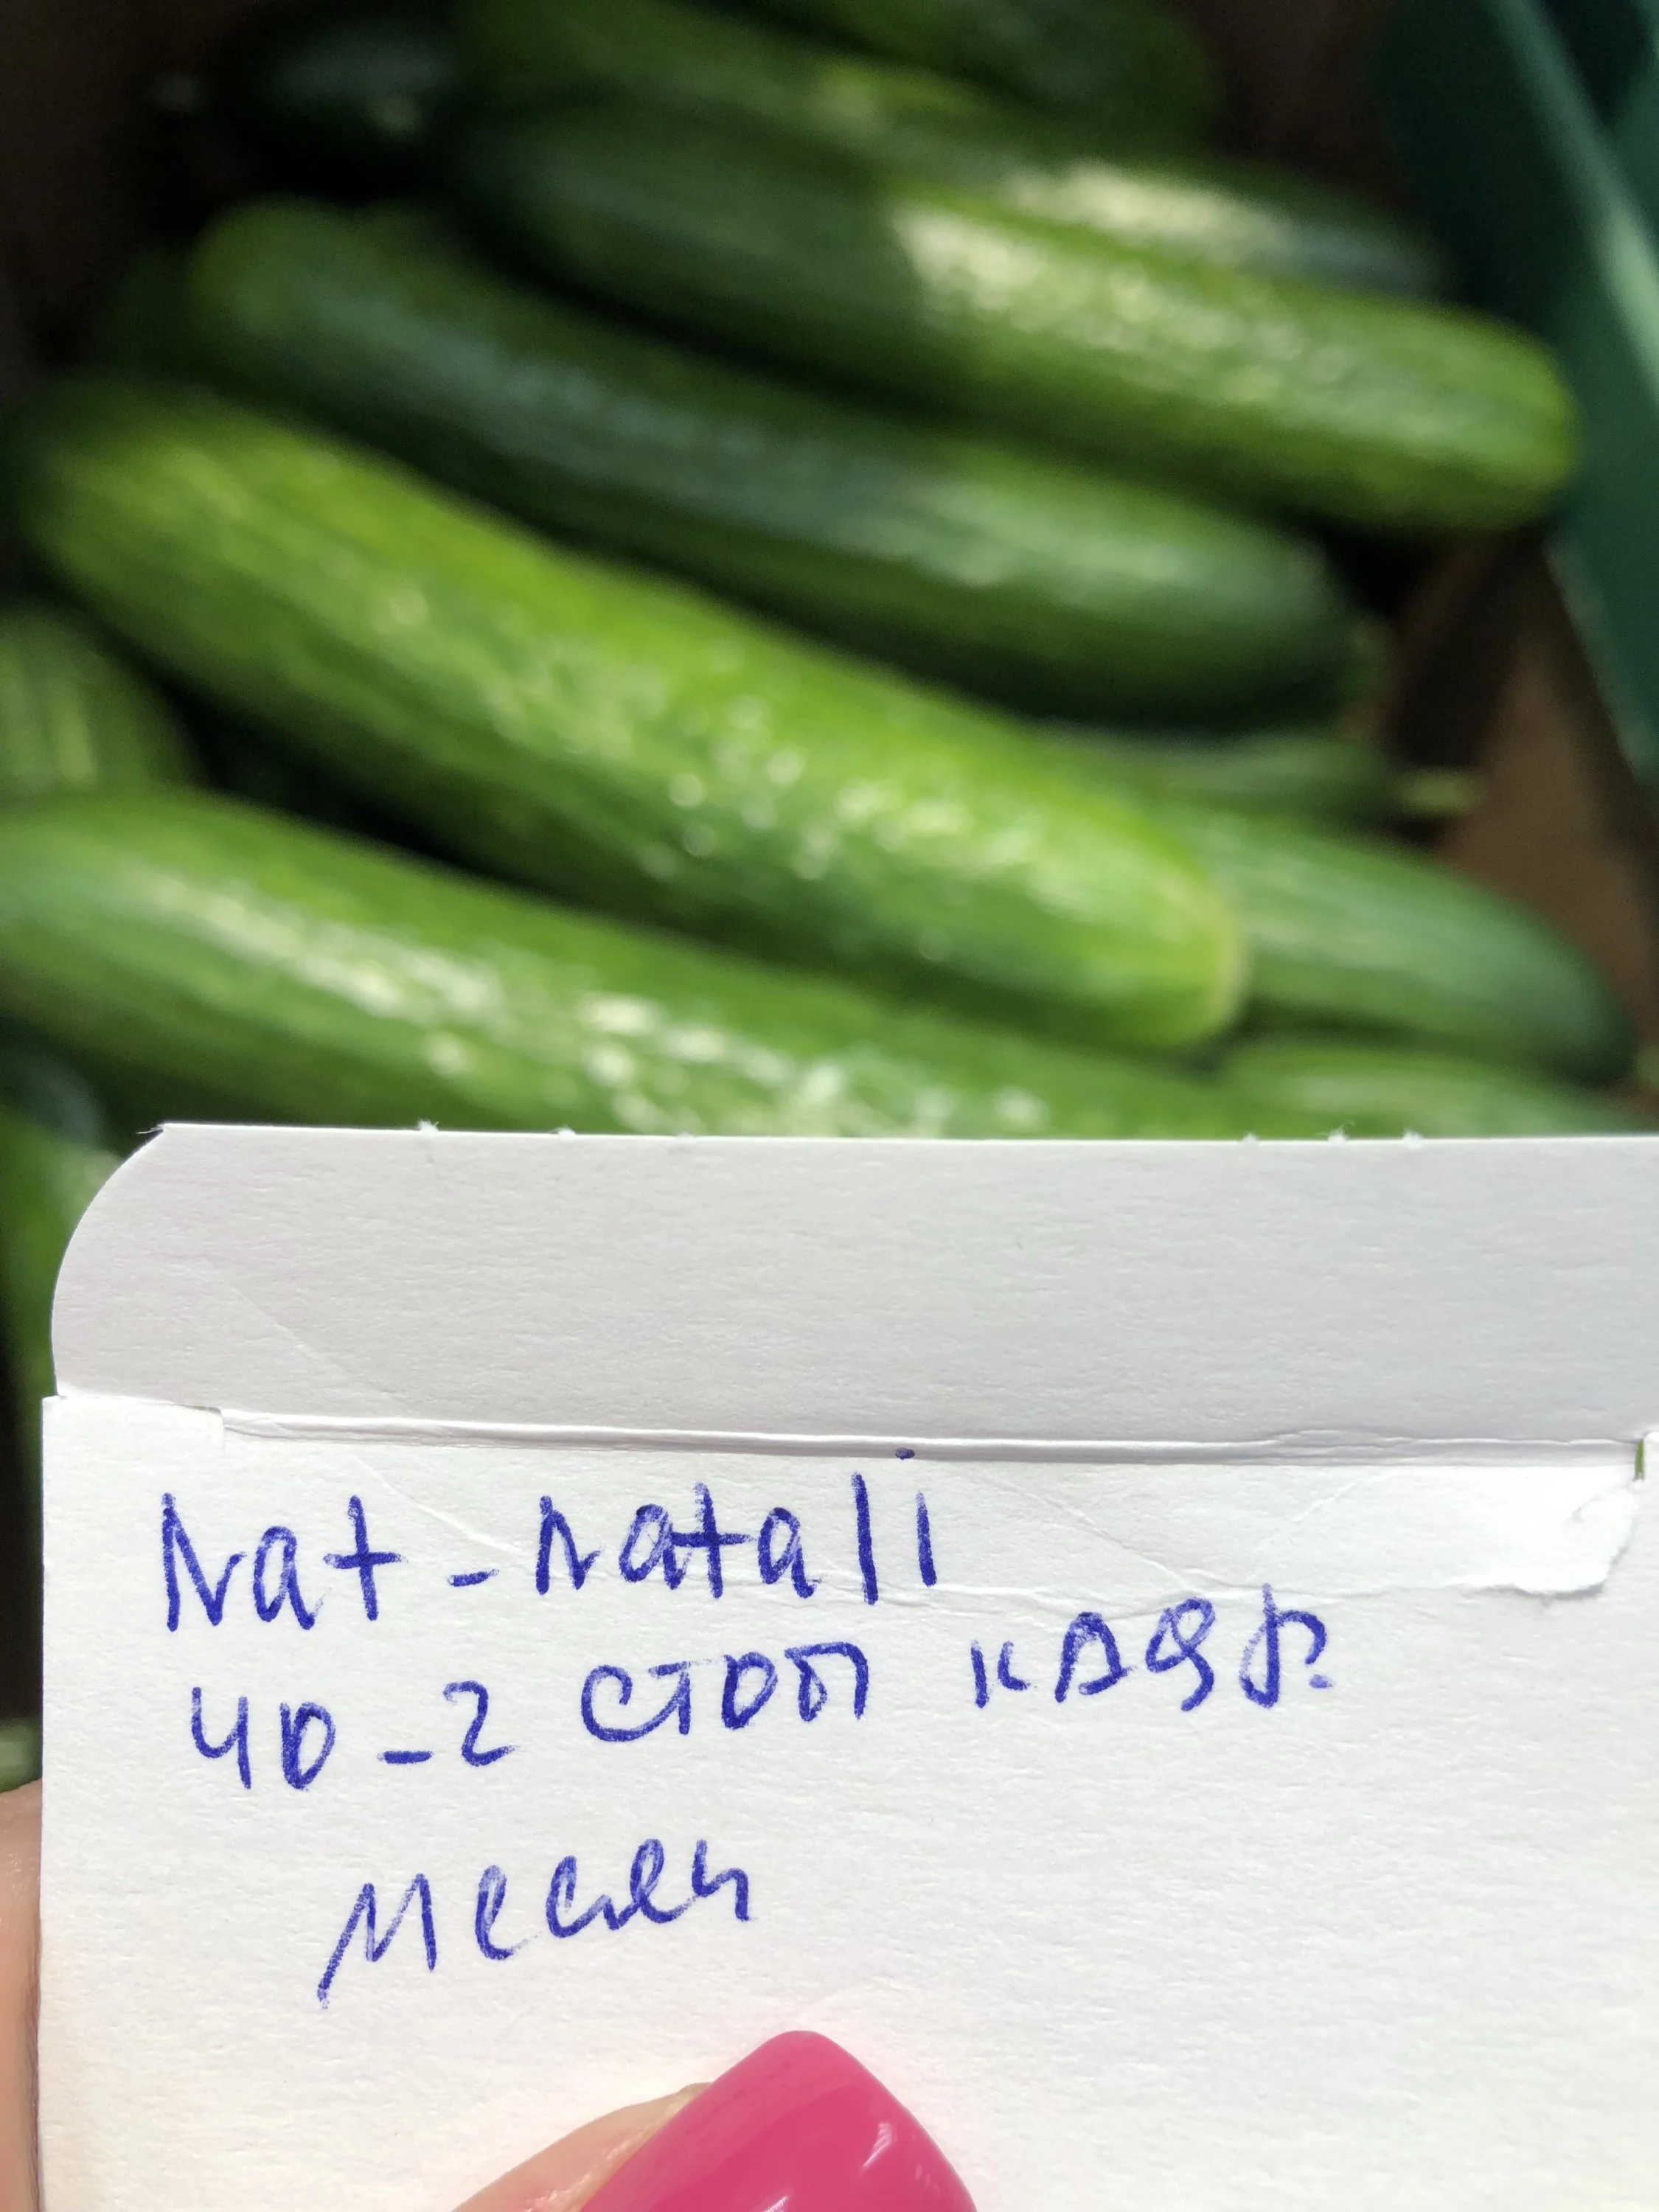 Nat-natali
40-2 стоп кадр
месяц